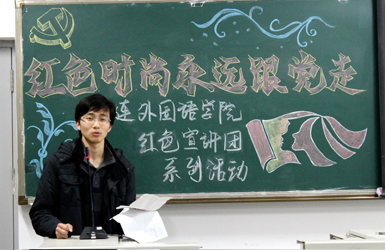 红色时尚永远跟党走
连外国语学院
红色宣讲团
系列活动